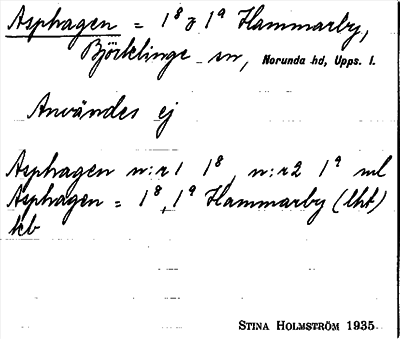 Asphagen = 1⁸ & 1⁹ Hammarby,
Björklinge sn, Norunda hd, Upps. l.
Användes ej
Asphagen n:r 1 1⁸, n:r 2 1⁹ ml
Asphagen = 1⁸, 1⁹ Hammarby (lht)
kb
STINA HOLMSTRÖM 1935